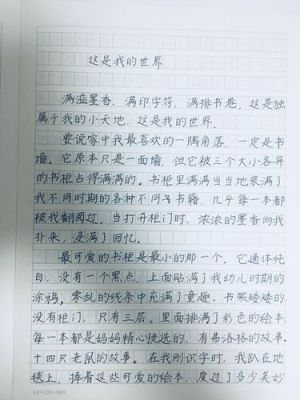 这是我的世界
满溢墨香，满印字符，满排书卷，这是独
属于我的小天地，这是我的世界。
要说家中我最喜欢的一隅角落，一定是书
墙。它原本只是一面墙，但它被三个大小各异
的书柜占得满满的。书柜里满满当当地装满了
我不同时期的各种不同书籍，几乎每一本都
被我翻阅过，当打开柜门时，浓浓的墨香向我
扑来，浸满了回忆。
最可爱的书柜是最小的那一个，它通体纯
白，没有一个黑点，上面贴满了我幼儿时期的
涂鸦。零乱的线条中充满了童趣，书架矮矮的
没有柜门，只有三层。里面排满了彩色的绘本
每一本都是妈妈精心挑选的，有弗洛格的故事、
十四只老鼠的故事。在我刚识字时，我趴在地
毯上，捧着这些可爱的绘本，度过了多少美妙